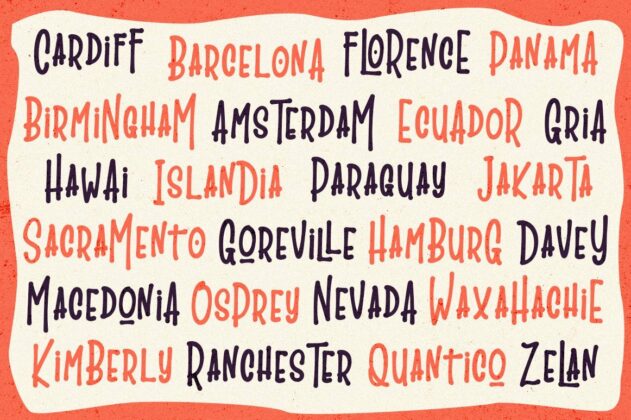 CARDiFF BARCELONA FLORENCE PANAMA
BiRMiNGHAM AMSTERDAM ECUADOR GRiA
HAWAi ISLANDiA PARAGUAY JAKARTA
SACRAMENTO GOREViLLE HAMBURG DAVEY
MACEDONiA OSPREY NEVADA WAXAHACHiE
KiMBERLY RANCHESTER QUANTiCO ZELAN